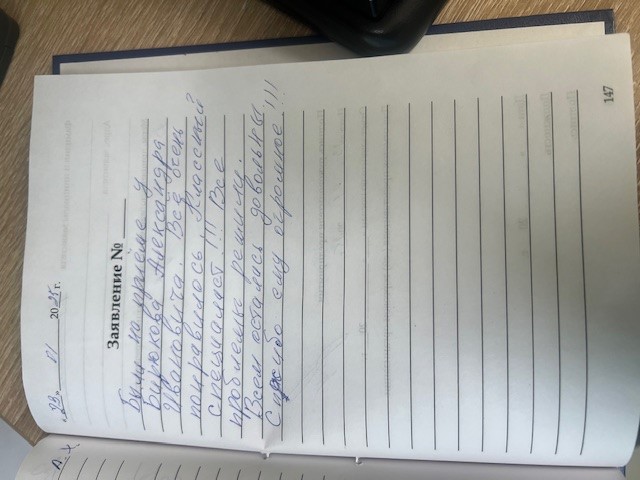 «23» 01 2025 г.
Заявление № ____
Были на приеме у
Бирюкова Александра
Ивановича. Все очень
понравилось!!! Классный
специалист!!! Все
проблемы решили.
Всем остались довольны.
Спасибо ему огромное!!!
147
А. Х.